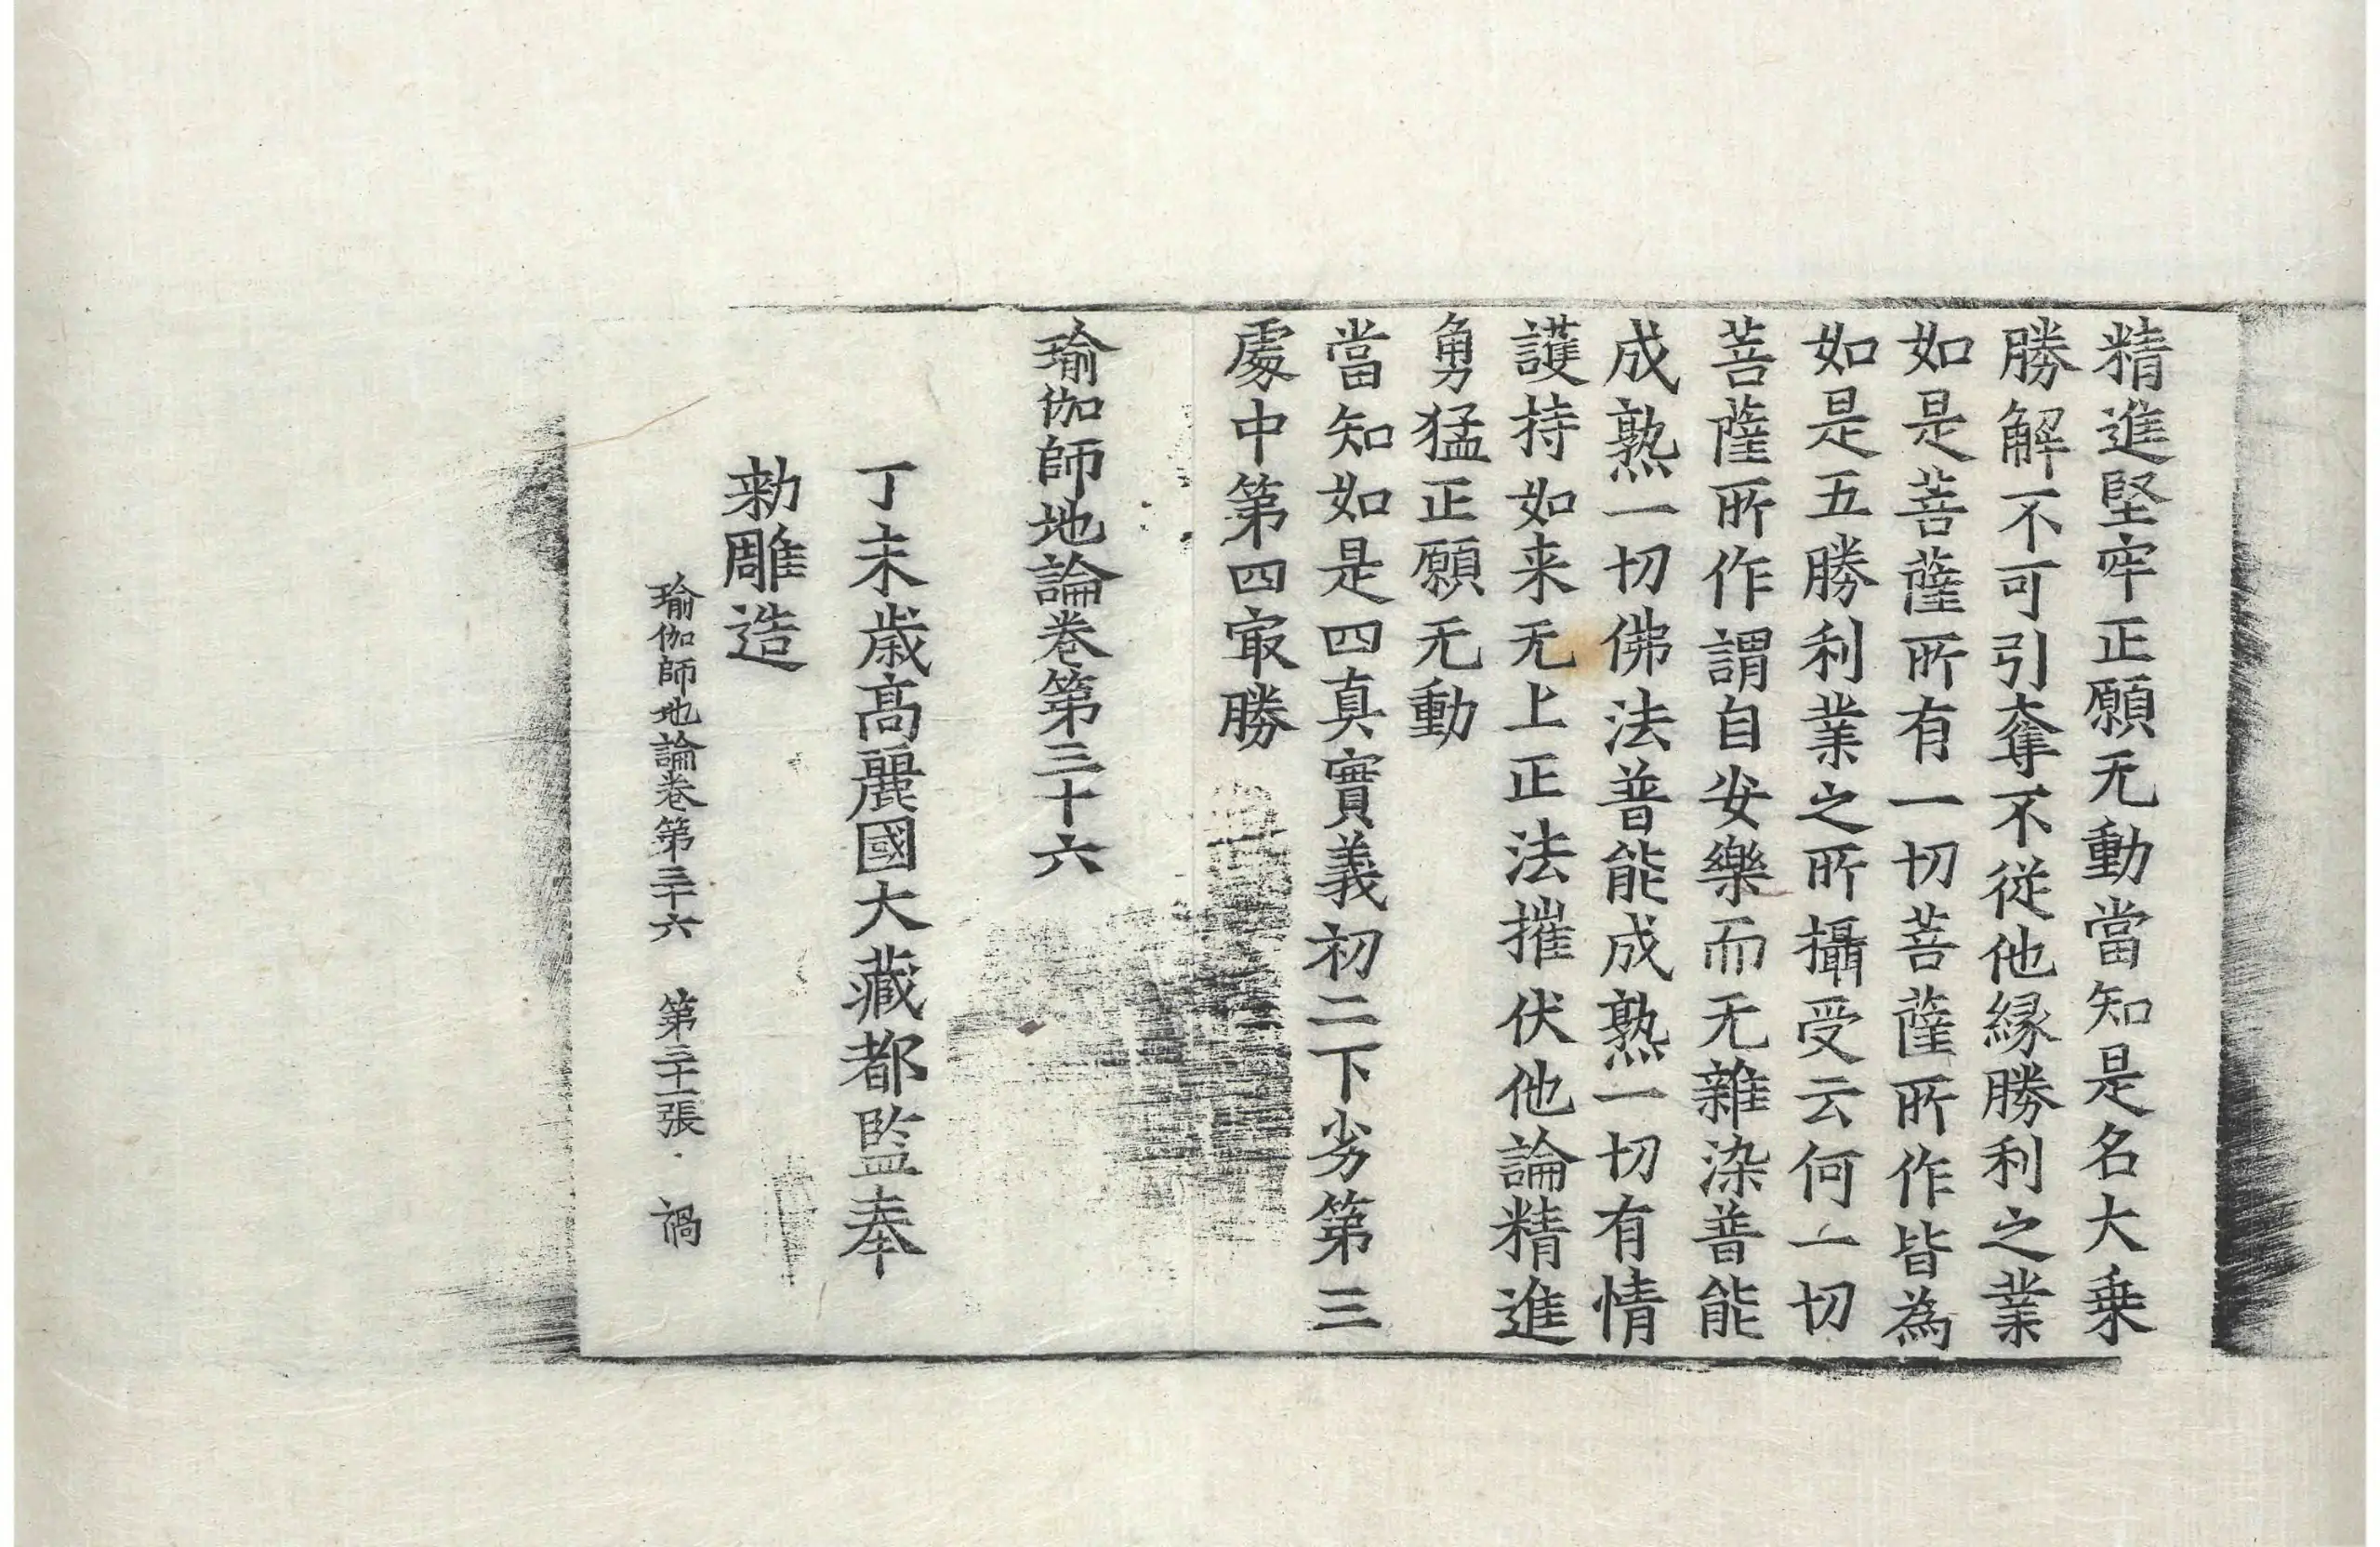 精進堅牢正願无動當知是名大乗
勝解不可引奪不從他縁勝利之業
如是菩薩所有一切菩薩所作皆為
如是五勝利業之所攝受云何一切
菩薩所作謂自安樂而无雜染普能
成熟一切佛法普能成熟一切有情
護持如来无上正法摧伏他論精進
勇猛正願无動
當知如是四真實義初二下劣第三
處中第四㝡勝
瑜伽師地論卷第三十六
丁未歳高麗國大藏都監奉
勅雕造
瑜伽師地論卷第三十六 第三十一張 禍